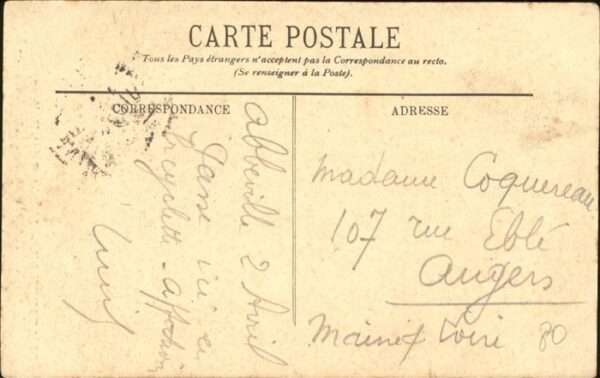 CARTE POSTALE
Tous les Pays étrangers n'acceptent pas la Correspondance au recto.
(Se renseigner à la Poste).
CORRESPONDANCE
ADRESSE
Abbeville 2 Avril
Passe ici en
Madame Coquereau
107 rue Eblé
Angers
Maine & Loire
80